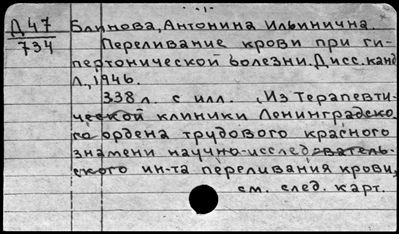 -1-
Д 47 Блинова, Антонина Ильинична.
734 Переливание крови при ги-
пертонической болезни. Дисс. канд
Л., 1946.
338 л. с илл. (Из Терапевти-
ческой клиники Ленинградско-
го ордена трудового красного
знамени научно-исследователь-
ского ин-та переливания крови,
см. след. карт.